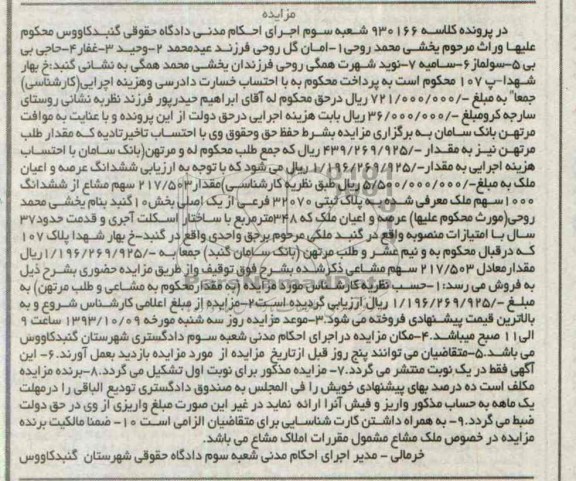 مزایده
در پرونده کلاسه ۹۳۰۱۶۶ شعبه سوم اجرای احکام مدنی دادگاه حقوقی گنبدکاووس محکوم
علیها وراث مرحوم یخشی محمد روحی۱-امان گل روحی فرزند عیدمحمد ۲-وحید ۳-غفار۴-حاجی بی
بی ۵-سولماز۶-سامیه ۷-نوید شهرت همگی روحی فرزندان یخشی محمد همگی به نشانی گنبد:خ بهار
شهدا-پ ۱۰۷ محکوم است به پرداخت محکوم به با احتساب خسارت دادرسی وهزینه اجرایی(کارشناسی)
جمعا به مبلغ -/۷۲۱/۰۰۰/۰۰۰ ریال درحق محکوم له آقای ابراهیم حیدرپور فرزند نظربه نشانی روستای
سارجه کرومبلغ -/۳۶/۰۰۰/۰۰۰ ریال بابت هزینه اجرایی درحق دولت از این پرونده و با عنایت به موافقت
مرتهن بانک سامان به برگزاری مزایده بشرط حفظ حق وحقوق وی با احتساب تاخیرتادیه که مقدار طلب
مرتهن نیز به مقدار -/۴۳۹/۲۶۹/۹۲۵ ریال که جمع طلب محکوم له و مرتهن(بانک سامان با احتساب
هزینه اجرایی به مقدار-/۱/۱۹۶/۲۶۹/۹۲۵ ریال می شود که با توجه به ارزیابی ششدانگ عرصه و اعیان
ملک به مبلغ-/۵/۵۰۰/۰۰۰/۰۰۰ریال طبق نظریه کارشناسی)مقدار۲۱۷/۵۰۳ سهم مشاع از ششدانگ
۱۰۰۰سهم ملک معرفی شده به پلاک ثبتی ۳۲۰۷۰ فرعی از یک اصلی بخش۱۰گنبد بنام یخشی محمد
روحی(مورث محکوم علیها) عرصه و اعیان ملک که ۳۴۸مترمربع با ساختار اسکلت آجری و قدمت حدود۳۷
سال با امتیازات منصوبه واقع در گنبد ملکی مرحوم برحق واحدی واقع در گنبد-خ بهار شهدا پلاک ۱۰۷
که درقبال محکوم به و نیم عشر و طلب مرتهن (بانک سامان گنبد) جمعا به -/۱/۱۹۶/۲۶۹/۹۲۵ریال
مقدارمعادل ۲۱۷/۵۰۳ سهم مشاعی ذکرشده بشرح فوق توقیف واز طریق مزایده حضوری بشرح ذیل
به فروش می رسد:۱-حسب نظریه کارشناس مورد مزایده (به مقدارمحکوم به مشاعی و طلب مرتهن) به
مبلغ -/۱/۱۹۶/۲۶۹/۹۲۵ ریال ارزیابی گردیده است۲-مزایده از مبلغ اعلامی کارشناس شروع و به
بالاترین قیمت پیشنهادی فروخته می شود.۳-موعد مزایده روز سه شنبه مورخه ۱۳۹۳/۱۰/۰۹ ساعت ۹
الی۱۱ صبح میباشد.۴-مکان مزایده دراجرای احکام مدنی شعبه سوم دادگستری شهرستان گنبدکاووس
می باشد.۵-متقاضیان می توانند پنج روز قبل ازتاریخ مزایده از مورد مزایده بازدید بعمل آورند.۶- این
آگهی فقط در یک نوبت منتشر می گردد.۷- مزایده مذکور برای نوبت اول تشکیل می گردد.۸-برنده مزایده
مکلف است ده درصد بهای پیشنهادی خویش را فی المجلس به صندوق دادگستری تودیع الباقی را درمهلت
یک ماهه به حساب مذکور واریز و فیش آنرا ارائه نماید در غیر این صورت مبلغ واریزی از وی در حق دولت
ضبط می گردد.۹- به همراه داشتن کارت شناسایی برای متقاضیان الزامی است ۱۰- ضمنا مالکیت برنده
مزایده در خصوص ملک مشاع مشمول مقررات املاک مشاع می باشد.
خرمالی - مدیر اجرای احکام مدنی شعبه سوم دادگاه حقوقی شهرستان گنبدکاووس